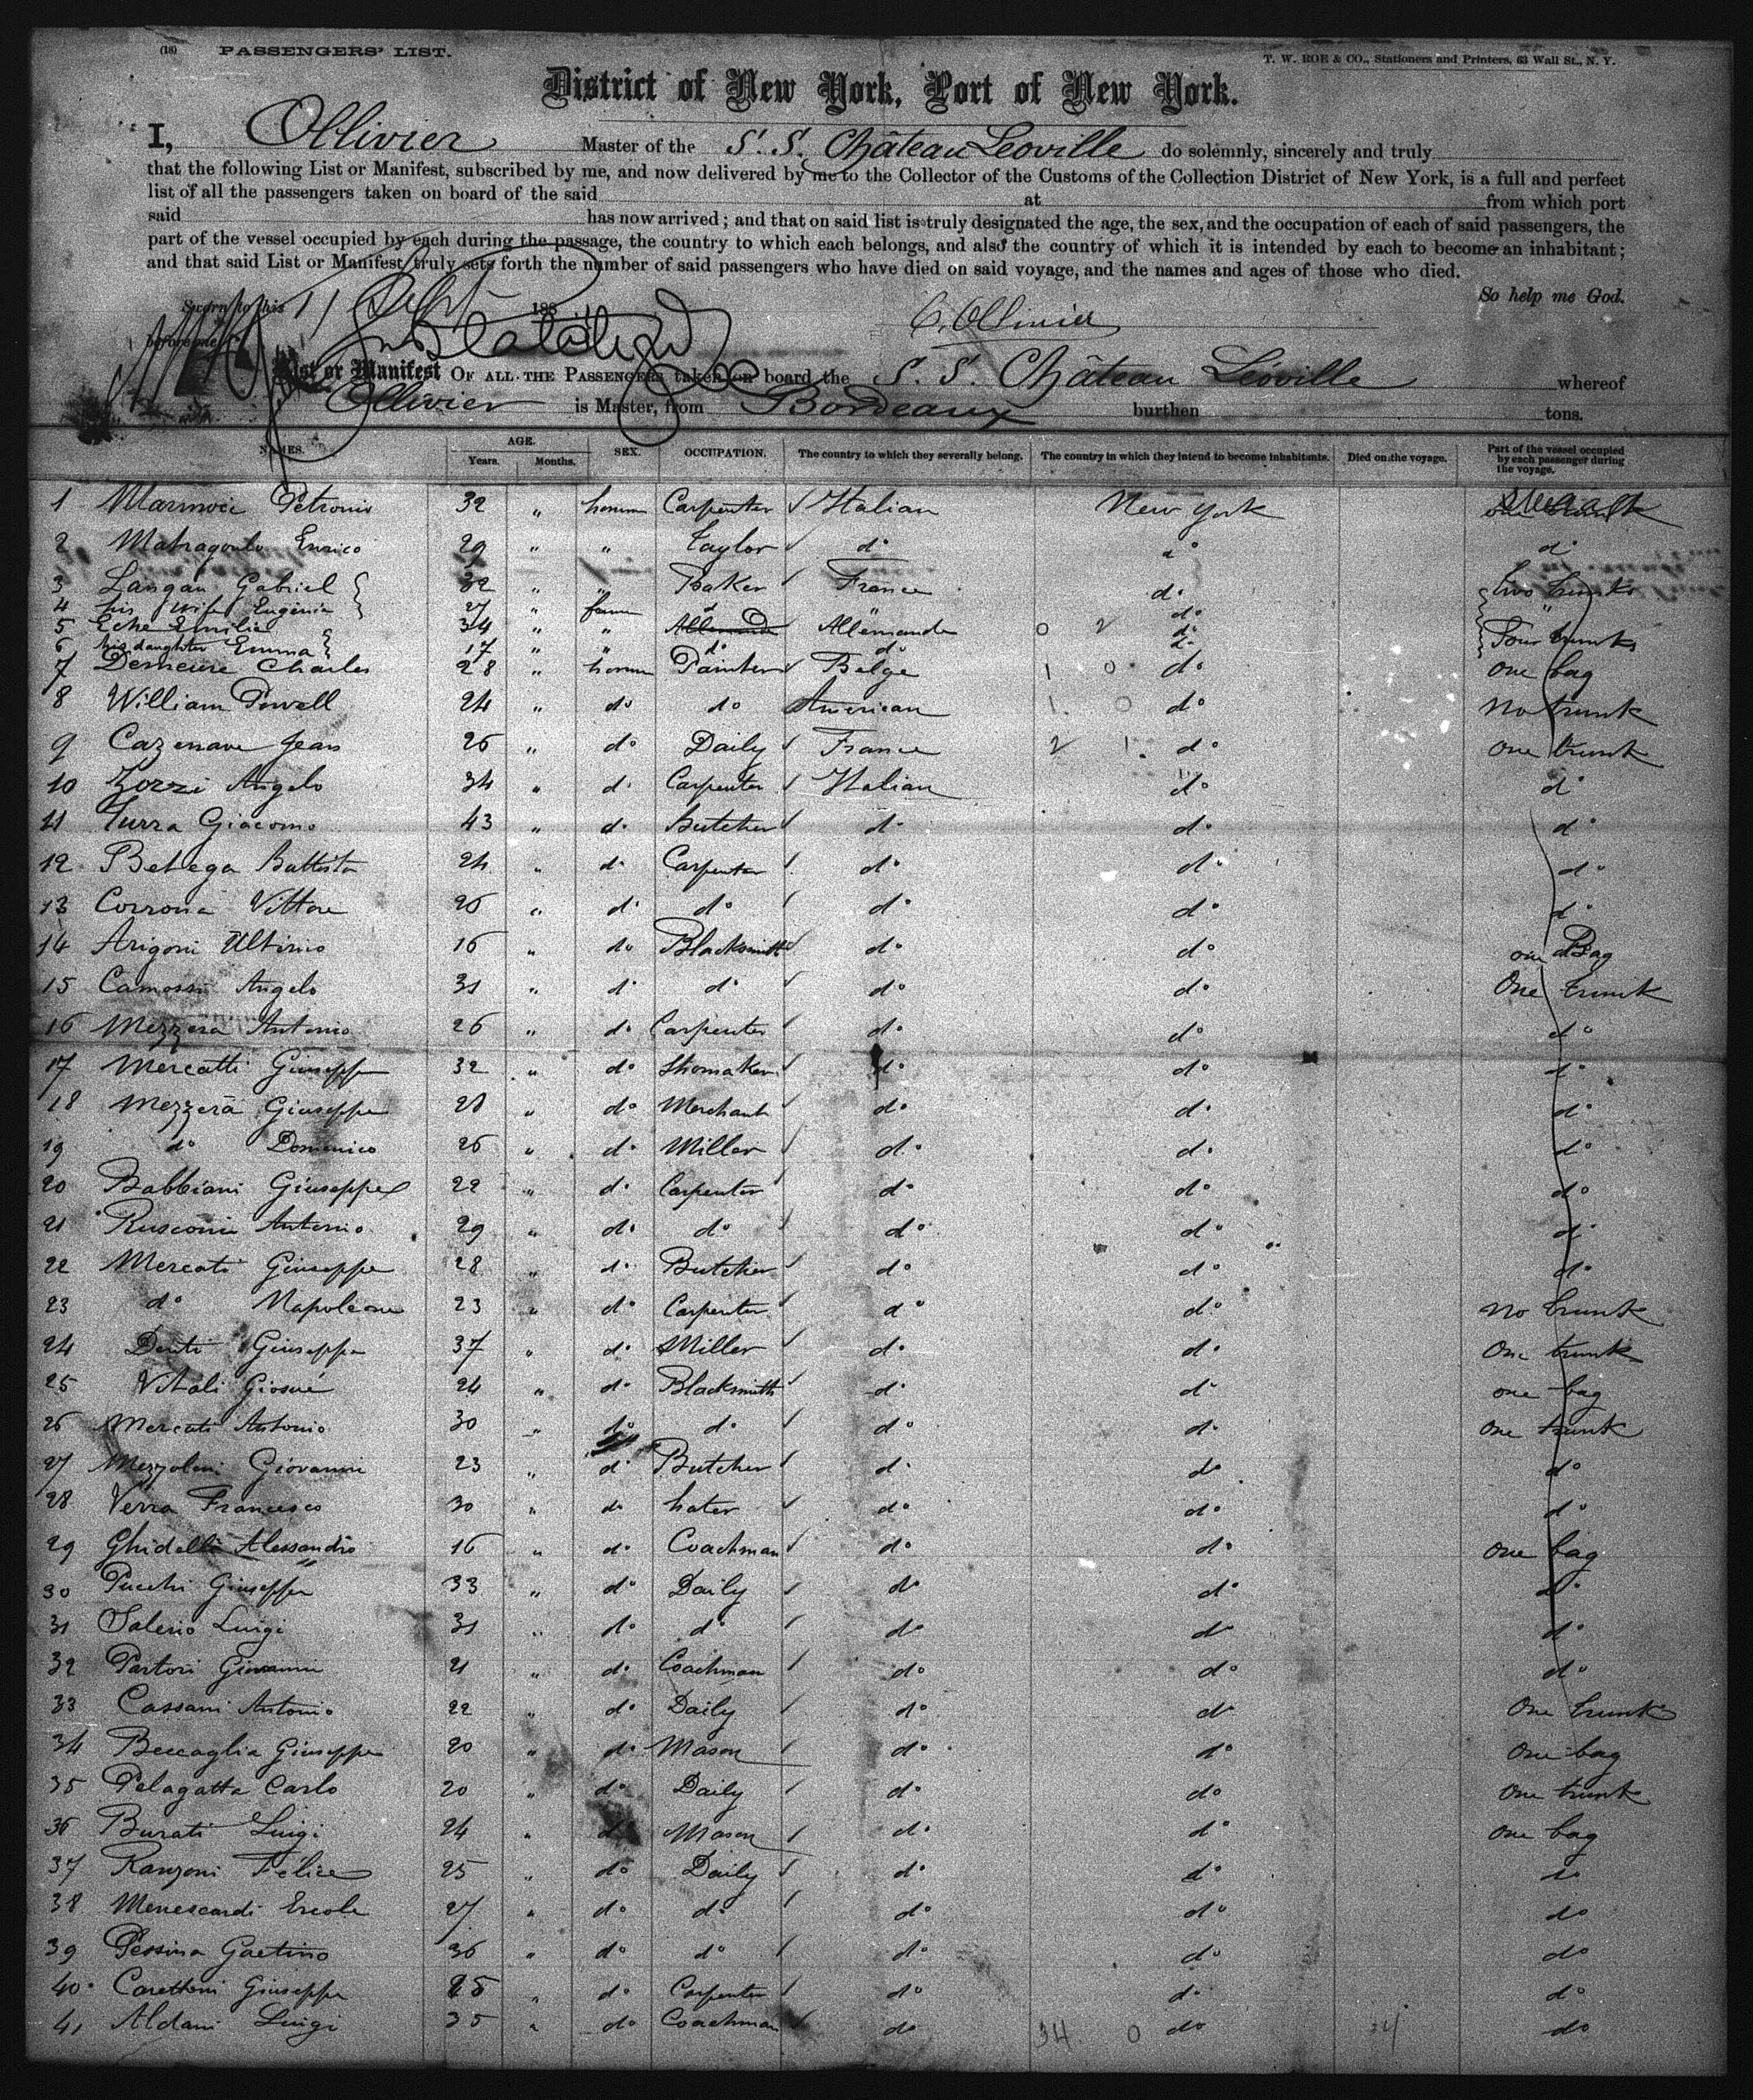 (18) PASSENGERS' LIST.
T. W. ROE & CO., Stationers and Printers, 63 Wall St., N. Y.
District of New York, Port of New York.
I, Ollivier Master of the S. S. Château Léoville do solemnly, sincerely and truly
that the following List or Manifest, subscribed by me, and now delivered by me to the Collector of the Customs of the Collection District of New York, is a full and perfect
list of all the passengers taken on board of the said at from which port
said has now arrived; and that on said list is truly designated the age, the sex, and the occupation of each of said passengers, the
part of the vessel occupied by each during the passage, the country to which each belongs, and also the country of which it is intended by each to become an inhabitant;
and that said List or Manifest truly sets forth the number of said passengers who have died on said voyage, and the names and ages of those who died.
So help me God.
Sworn to this 11 Sept 188
before me
C. Ollivier
List or Manifest OF ALL THE PASSENGERS taken on board the S. S. Château Léoville whereof
Ollivier is Master, from Bordeaux burthen tons.
NAMES. AGE. Years. Months. SEX. OCCUPATION. The country to which they severally belong. The country in which they intend to become inhabitants. Died on the voyage. Part of the vessel occupied by each passenger during the voyage.
1 Petronio 32 " homm Carpenter Italian New York
2 Enrico 29 " " Taylor do do do
3 Langau Gabriel 32 " " Baker France do two trunks
4 his wife Eugénie 27 " femm d do "
5 Eche Emilie 34 " " Allemande Allemande 0 2 do Four trunks
6 his daughter Emma 17 " " do do do
7 Demeure Charles 28 " homm Painter Belge 1 0 do one bag
8 William Powell 24 " do do American 1 0 do No trunk
9 Cazenave Jean 26 " do Daily France 2 1 do one trunk
10 Zozzi Angelo 34 " do Carpenter Italian do do
11 Turra Giacomo 43 " do Butcher do do do
12 Betega Battista 24 " do Carpenter do do do
13 Corrona Vittore 26 " do do do do do
14 Arigoni Ultimo 16 " do Blacksmith do do one Bag
15 Camossi Angelo 31 " do do do do One trunk
16 Mezzera Antonio 26 " do Carpenter do do do
17 Mercatti Giuseppe 32 " do Shomaker do do do
18 Mezzera Giuseppe 28 " do Merchant do do do
19 do Domenico 26 " do Miller do do do
20 Babbiani Giuseppe 22 " do Carpenter do do do
21 Rusconi Antonio 29 " do do do do do
22 Mercati Giuseppe 28 " do Butcher do do do
23 do Napoleone 23 " do Carpenter do do No trunk
24 Denti Giuseppe 37 " do Miller do do One trunk
25 Vitali Giosué 24 " do Blacksmith do do one bag
26 Mercati Antonio 30 " do do do do One trunk
27 Mezzoleni Giovanni 23 " do Butcher do do do
28 Verra Francesco 30 " do hater do do do
29 Ghidelli Alessandro 16 " do Coachman do do One bag
30 Pucchi Giuseppe 33 " do Daily do do do
31 Salerio Luigi 31 " do do do do do
32 Partori Giovanni 21 " do Coachman do do do
33 Cassani Antonio 22 " do Daily do do One trunk
34 Beccaglia Giuseppe 20 " do Mason do do One bag
35 Pelagatta Carlo 20 " do Daily do do One trunk
36 Burati Luigi 24 " do Mason do do One bag
37 Ranzoni Felice 25 " do Daily do do do
38 Menescardi Ercole 27 " do do do do do
39 Pessina Gaetino 36 " do do do do do
40 Carettoni Giuseppe 25 " do Carpenter do do do
41 Aldani Luigi 35 " do Coachman do 34 0 do 34 do